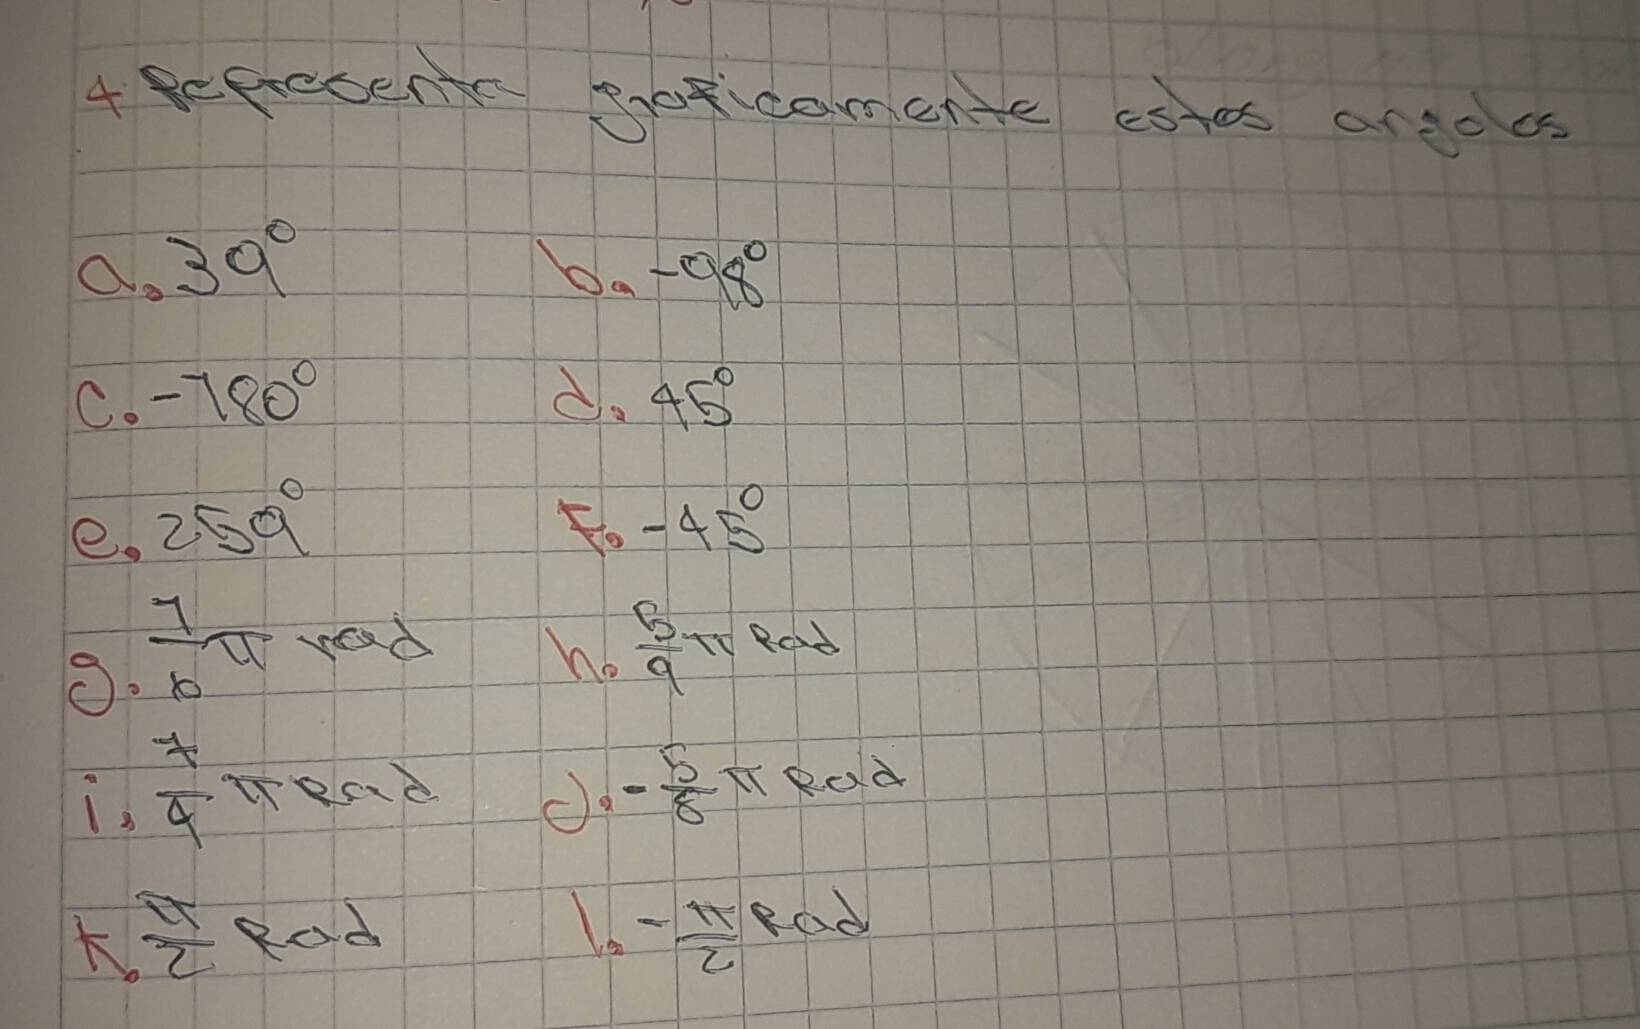 4 Representa graficamente estos angulos
a. 39° b. -98°
c. -180° d. 45°
e. 259° f. -45°
g. 7/6 π rad h. 5/9 π Rad
i. 7/4 π Rad j. -5/6 π Rad
k. π/2 Rad l. -π/2 Rad